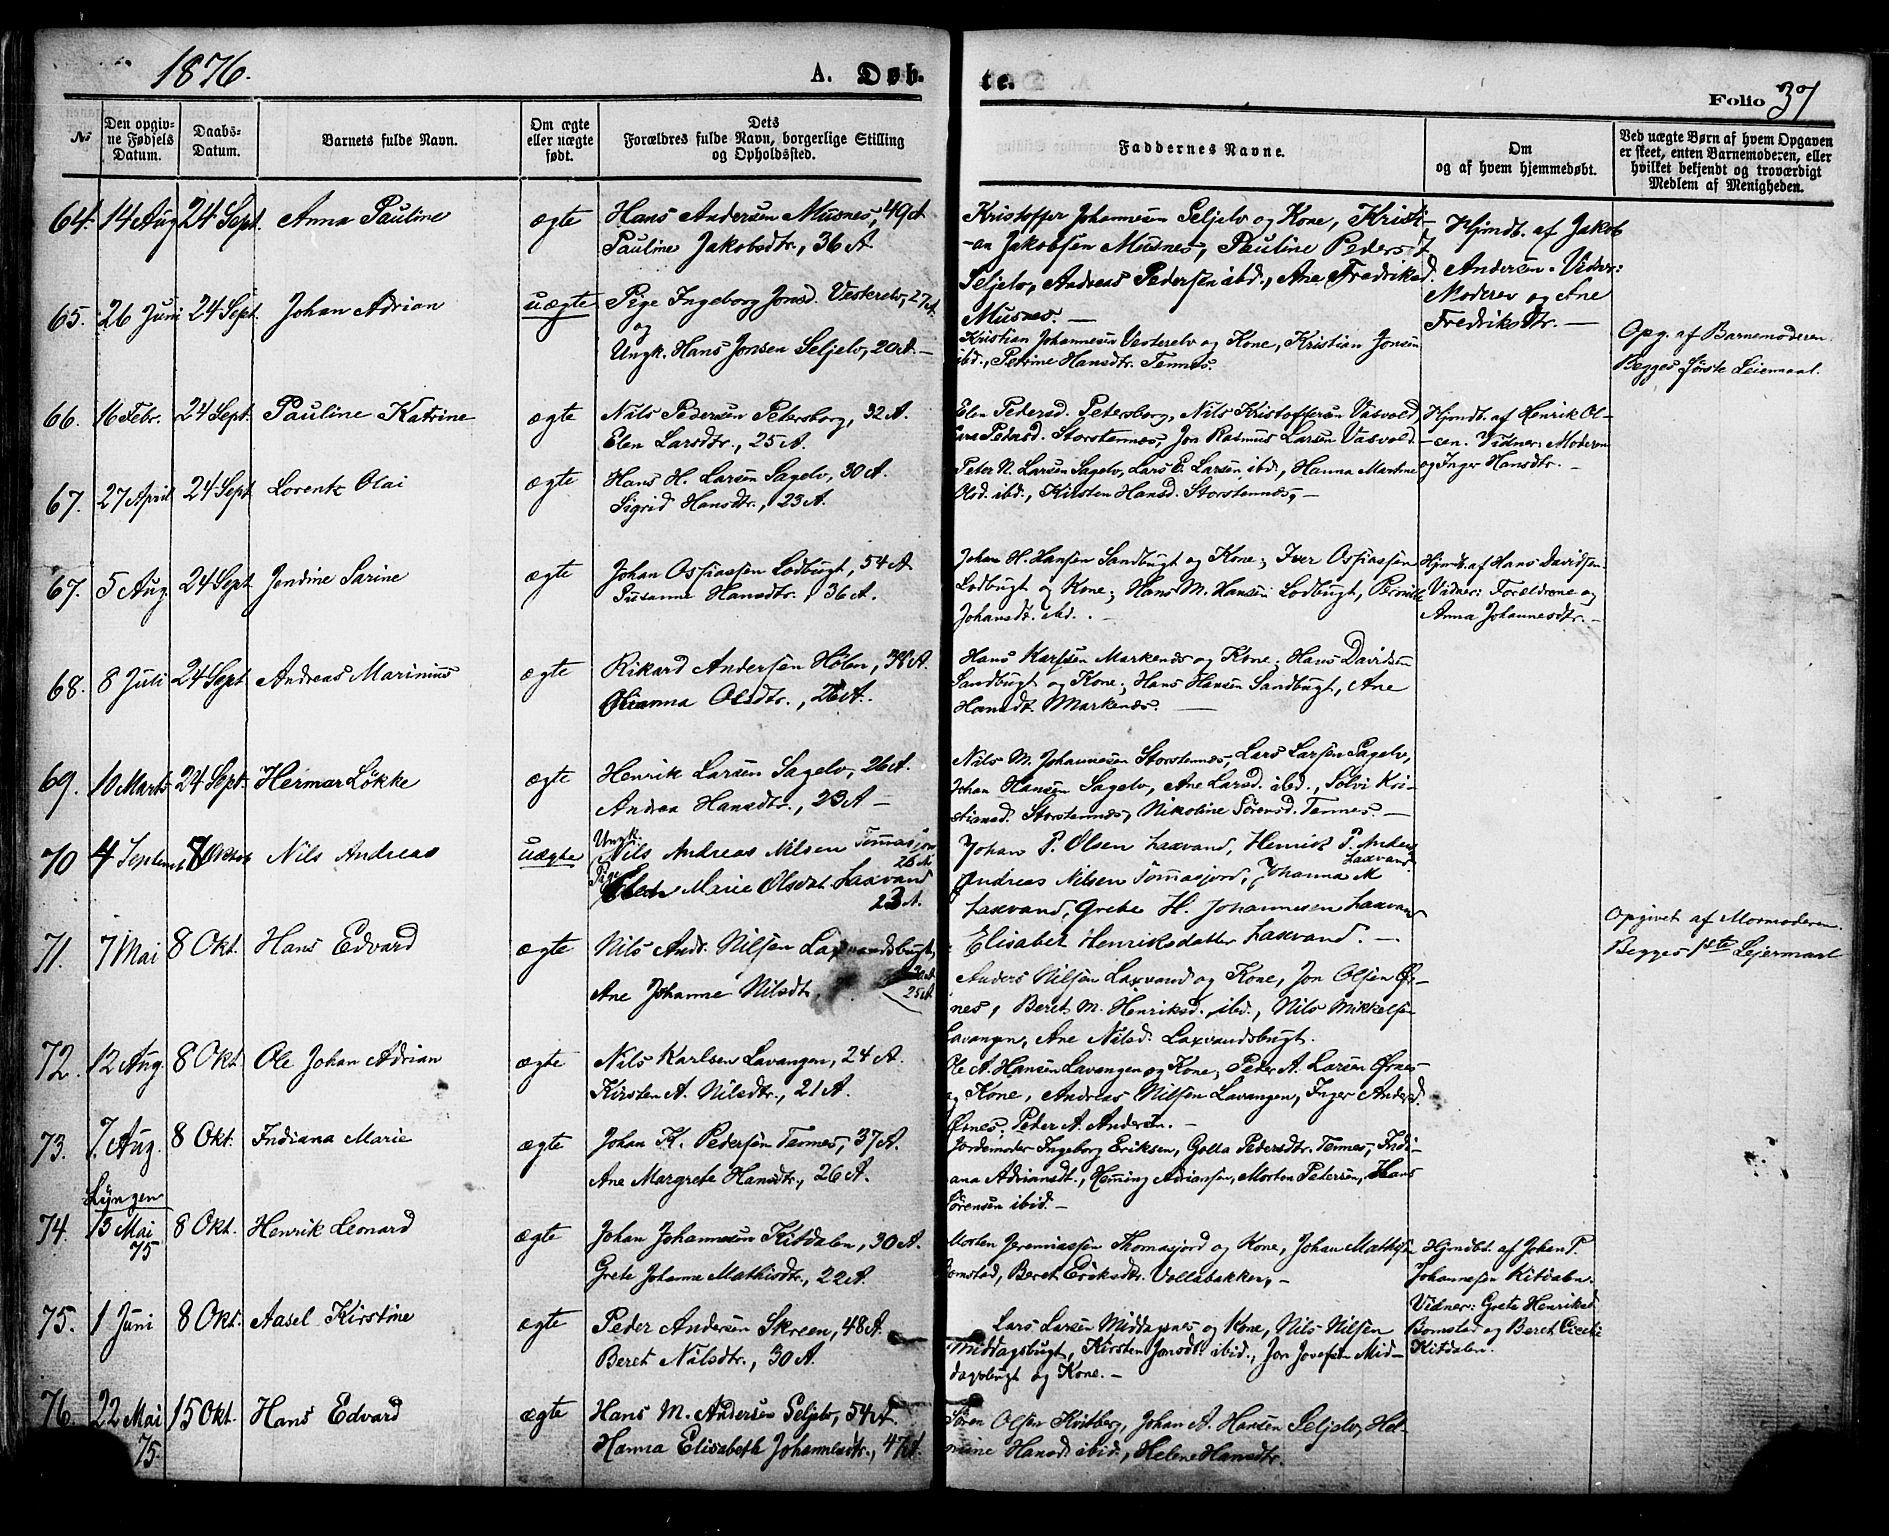 1876.
A. Døb.
te.
Folio 37
No
Den opgiv-
ne Fødsels
Datum.
Daabs-
Datum.
Barnets fulde Navn.
Om ægte
eller uægte
født.
Dets
Forældres fulde Navn, borgerlige Stilling
og Opholdssted.
Faddernes Navne.
Om
og af hvem hjemmedøbt.
Ved uægte Børn af hvem Opgaven
er skeet, enten Barnemoderen, eller
hvilket bekjendt og troværdigt
Medlem af Menigheden.
64. 14 Aug 24 Sept. Anna Pauline ægte
Hans Andersen Musnes, 49 A
Pauline Jakobsdtr., 36 A
Kristoffer Johannesen Seljelv og Kone, Kristi-
-an Jakobsen Musnes, Pauline Pedersd.
Seljelv, Andreas Pedersen ibd., Ane Fredriksd.
Musnes. —
Hjmdb. af Jakob
Andersen. Vidner:
Moderen og Ane
Fredriksdtr. —
65. 26 Juni 24 Sept. Johan Adrian uægte
Pige Ingeborg Jonsd. Vesterelv, 27 A.
og
Ungk. Hans Jonsen Seljelv, 20 A. —
Kristian Johannesen Vesterelv og Kone, Kristian Jonsen
ibd., Petrine Hansdtr. Tennes.
Opg. af Barnemoderen.
Begges første Leiermaal.
66. 16 Febr. 24 Sept. Pauline Katrine ægte
Nils Pedersen Petersborg, 32 A.
Elen Larsdtr., 25 A.
Elen Pedersd. Petersborg, Nils Kristoffersen Vasvold,
Pedersd. Storstennes, Jon Rasmus Larsen Vasvold.
Hjmdb. af Henrik Ol-
-sen. Vidner: Moderen
og Inger Hansdtr. —
67. 27 April 24 Sept Lorentz Olai ægte
Hans H. Larsen Sagelv, 30 A.
Sigrid Hansdtr., 23 A.
Peter N. Larsen Sagelv, Lars E. Larsen ibd., Hanna Martine
Olsd. ibd., Kirsten Hansd. Storstennes, —
67. 5 Aug. 24 Sept Jendine Sarine ægte
Johan Ossiassen Lodbugt, 54 A
Susanne Hansdtr., 36 A.
Johan H. Hansen Sandbugt og Kone; Iver Ossiassen
Lodbugt og Kone; Hans M. Hansen Lodbugt, Pernille
Johansdt. ibd. . —
Hjmdb. af Hans Davidsen.
Vidner: Forældrene og
Anna Johannesdtr. —
68. 8 Juli 24 Sept Andreas Marinius ægte
Rikard Andersen Holen, 38 A.
Olianna Olsdtr., 26 A.
Hans Karlsen Markenes og Kone; Hans Davidsen
Sandbugt og Kone; Hans Hansen Sandbugt, Ane
Hansdt. Markenes. —
69. 10 Marts 24 Sept. Hermar Løkke ægte
Henrik Larsen Sagelv, 26 A.
Andrea Hansdtr., 23 A —
Nils M. Johannesen Storstennes, Lars Larsen Sagelv,
Johan Hansen Sagelv, Ane Larsd. ibd., Solvi Kri-
stiansd. Storstennes, Nikoline Sörensd. Tennes. —
70 4 Septemb 8 Oktob Nils Andreas uægte
Ungk.
Nils Andreas Nilsen Tomasjord
26 A
Pige
Elen Marie Olsdat. Laxvand
23 A.
Johan P. Olsen Laxvand, Henrik P. Anders
Laxvand
Andreas Nilsen Tomasjord, Johanna M
Laxvand, Grete H. Johannesen Laxvand
Elisabet Henriksdatter Laxvand. —
Opgivet af Mormoderen.
Begges 1ste Lejermaal
71. 7 Mai 8 Okt. Hans Edvard ægte
Nils Andr. Nilsen Laxvandsbugt,
Ane Johanne Nilsdt.,
25 A
Anders Nilsen Laxvand og Kone, Jon Olsen Ør-
nes, Beret M. Henriksd. ibd., Nils Mikkelsen
Lavangen, Ane Nilsd. Laxvandsbugt.
72. 12 Aug. 8 Okt. Ole Johan Adrian ægte
Nils Karlsen Lavangen, 24 A.
Kirsten A. Nilsdtr., 21 A.
Ole A. Hansen Lavangen og Kone; Peder A. Larsen Ørnes
og Kone, Andreas Nilsen Lavangen, Inger Andersd.
Ørnes, Peder A. Andersen. —
73. 7. Aug. 8 Okt. Indiana Marie ægte
Johan K. Pedersen Tennes, 37 A.
Ane Margrete Hansdtr., 26 A.
Jordemoder Ingeborg Eriksen, Golla Pedersdtr. Tennes, Indi-
ana Adriansdt., Heming Adriansen, Morten Petersen, Hans
Sörensen ibid. —
Lyngen
74. 13 Mai
75
8 Okt. Henrik Leonard ægte
Johan Johannesen Kitdalen, 30 A.
Grete Johanne Mathisdtr., 22 A.
Morten Jeremiassen Thomasjord og Kone, Johan Mathisen
Bomstad, Beret Eriksdtr. Vollabakken, —
Hjmdbt. af Johan P.
Johannesen Kitdalen.
Vidner: Grete Henriksd.
Bomstad og Beret Cecilie
Kitdalen.
75. 1 Juni 8 Okt. Aasel Kirstine ægte
Peder Andersen Skreen, 48 A.
Beret Nilsdtr., 30 A.
Lars Larsen Middagsnes og Kone, Nils Nilsen
Middagsbugt, Kirsten Jonsdt. ibid., Jon Josefsen Mid-
dagsbugt og Kone. —
76. 22 Mai
75.
15 Okt. Hans Edvard ægte
Hans M. Andersen Seljelv, 54 A.
Hanna Elisabeth Johannesdtr., 47 A.
Sören Olsen Kvitberg, Johan A. Hansen Seljelv, Hel-
mine Hansd. ibid., Helene Hansdtr.